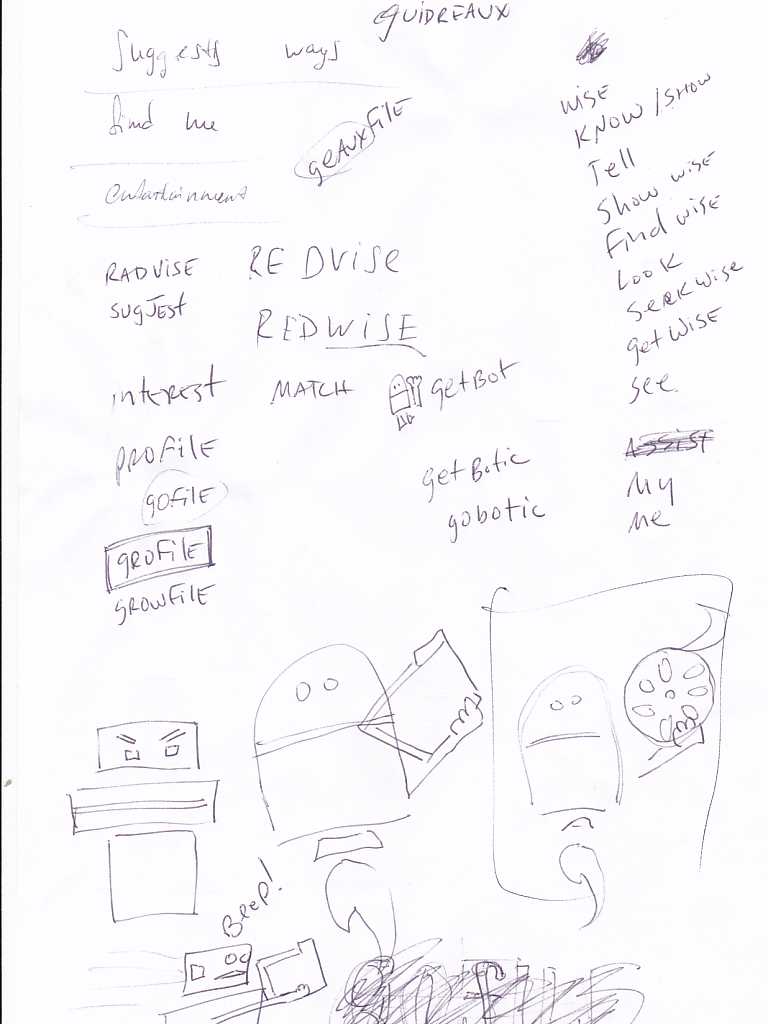 GUIDREAUX
Suggests ways
find me
geauxfile
entertainment
RADVISE
REDVISE
SUGJEST
REDWISE
INTEREST MATCH
getBOT
PROFILE
GOFILE
getBotic
gobotic
GROFILE
GROWFILE
WISE
KNOW / SHOW
Tell
Show wise
Find wise
LOOK
SEEKWISE
getWISE
SEE
ASSIST
My
Me
Beep!